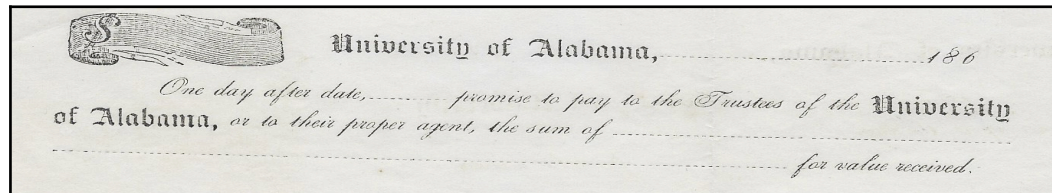 $
University of Alabama, 186
One day after date, promise to pay to the Trustees of the University
of Alabama, or to their proper agent, the sum of
for value received.